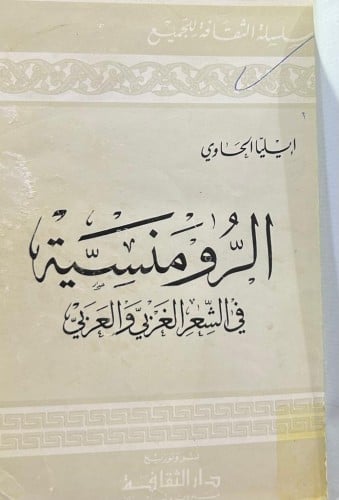 سلسلة الثقافة للجميع
٦
ايليا الحاوي
الرُّومَنسِيَّة
في الشِّعرِ الغَرْبيِّ وَالعَرَبيِّ
نشر وتوزيع
دار الثقافة